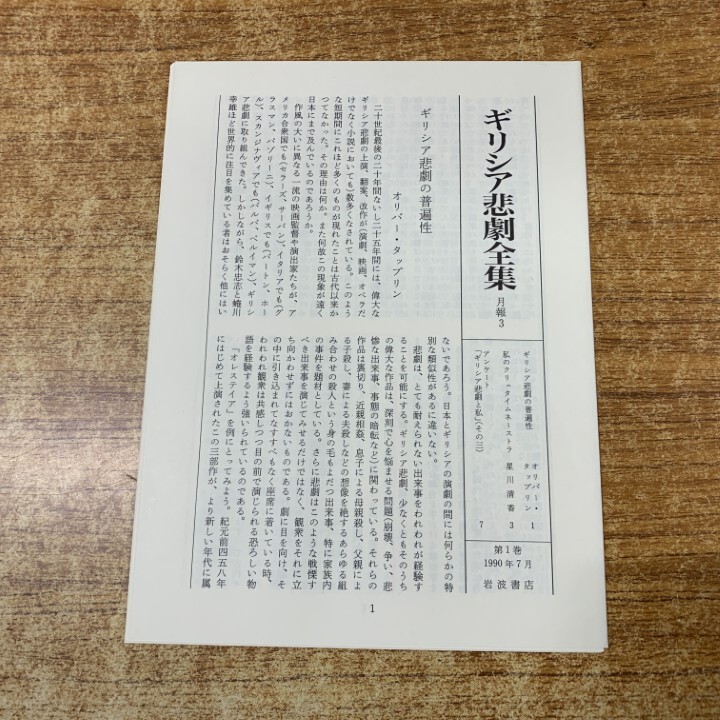 ギリシア悲劇全集 月報3
ギリシア悲劇の普遍性 オリバー・タップリン 1
私のクリュタイムネーストラ 星川清香 3
アンケート
「ギリシア悲劇と私」(その三) 7
第1巻
1990年7月
岩波書店
ギリシア悲劇の普遍性
オリバー・タップリン
二十世紀最後の二十年間ないし二十五年間には、偉大な
ギリシア悲劇の上演、翻案、改作が(演劇、映画、オペラだ
けでなく小説においても)数多くなされている。このよう
な短期間にこれほど多くのものが現れたことは古代以来か
つてなかった。その理由は何か。また何故この現象が遠く
日本にまで及んでいるのであろうか。
作風の大いに異なる一流の映画監督や演出家たちが、ア
メリカ合衆国でも(セラーズ、サーバン)、イタリアでも(グ
ラスマン、パゾリーニ)、イギリスでも(バートン、ホー
ル)、スカンジナヴィアでも(バルバ、ベルイマン)、ギリシ
ア悲劇に取り組んできた。しかしながら、鈴木忠志と蜷川
幸雄ほど世界的に注目を集めている者はおそらく他にはい
ないであろう。日本とギリシアの演劇の間には何らかの特
別な類似性があるに違いない。
悲劇は、とても耐えられない出来事をわれわれが経験す
ることを可能にする。ギリシア悲劇、少なくともそのうち
の偉大な作品は、深刻で心を悩ませる問題(崩壊、争い、悲
惨な出来事、事態の暗転など)に関わっている。それらの
作品は裏切り、近親相姦、息子による母親殺し、父親によ
る子殺し、妻による夫殺しなどの想像を絶するあらゆる組
み合わせの殺人という身の毛もよだつ出来事、特に家族内
の事件を題材としている。さらに悲劇はこのような戦慄す
べき出来事を演じてみせるだけではなく、観衆をそれに立
ち向かわせずにはおかないものである。劇に目を向け、そ
の中に引き込まれてなすすべもなく座席に着いている時、
われわれ観衆は共感しつつ目の前で演じられる恐ろしい物
語を経験するよう強いられているのである。
『オレステイア』を例にとってみよう。紀元前四五八年
にはじめて上演されたこの三部作が、より新しい年代に属
1